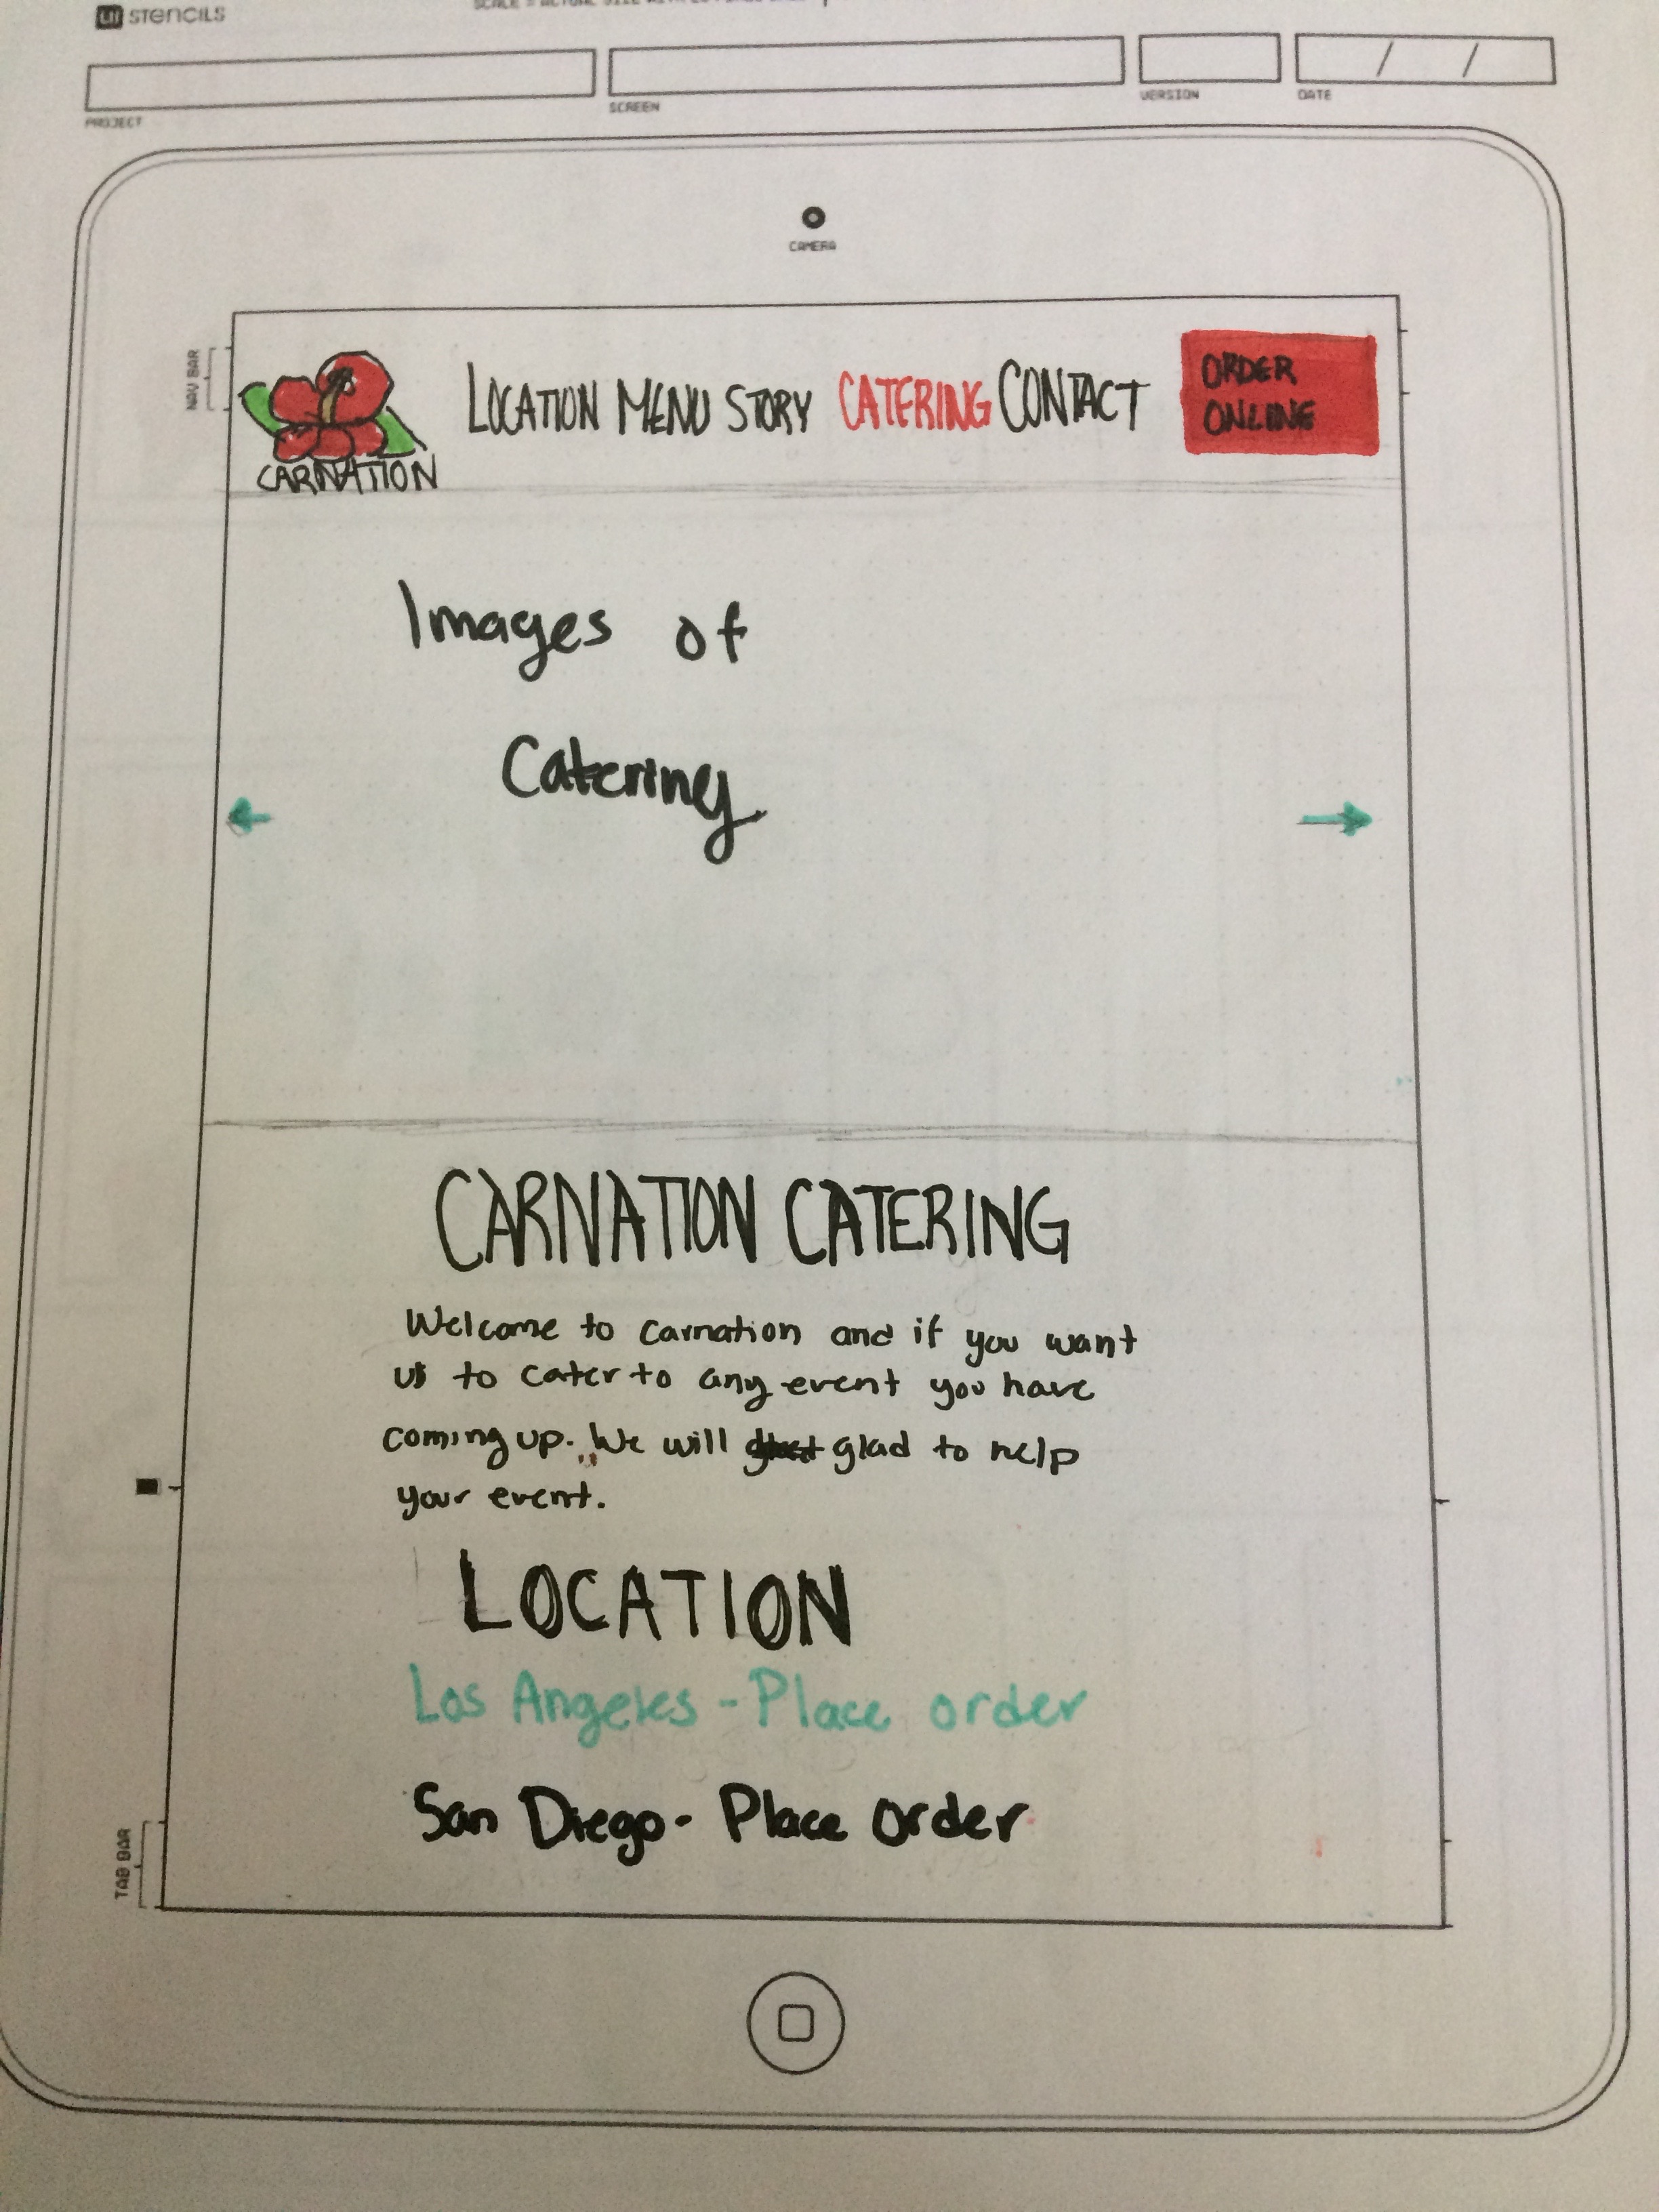 UI STENCILS
PROJECT
SCREEN
VERSION
DATE
/ /
CAMERA
NAV BAR
CARNATION
LOCATION MENU STORY CATERING CONTACT
ORDER
ONLINE
Images of
Catering
CARNATION CATERING
Welcome to Carnation and if you want
us to cater to any event you have
coming up. We will glad to help
your event.
LOCATION
Los Angeles - Place order
San Diego - Place Order
TAB BAR